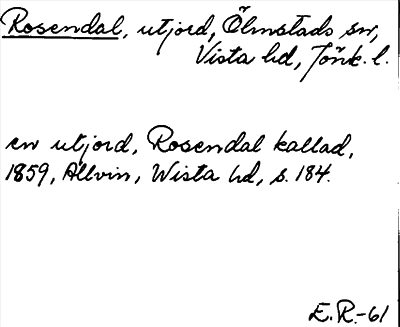 Rosendal, utjord, Ölmstads sn,
Vista hd, Jönk. l.
en utjord, Rosendal kallad,
1859, Allvin, Wista hd, s. 184.
E.R.-61